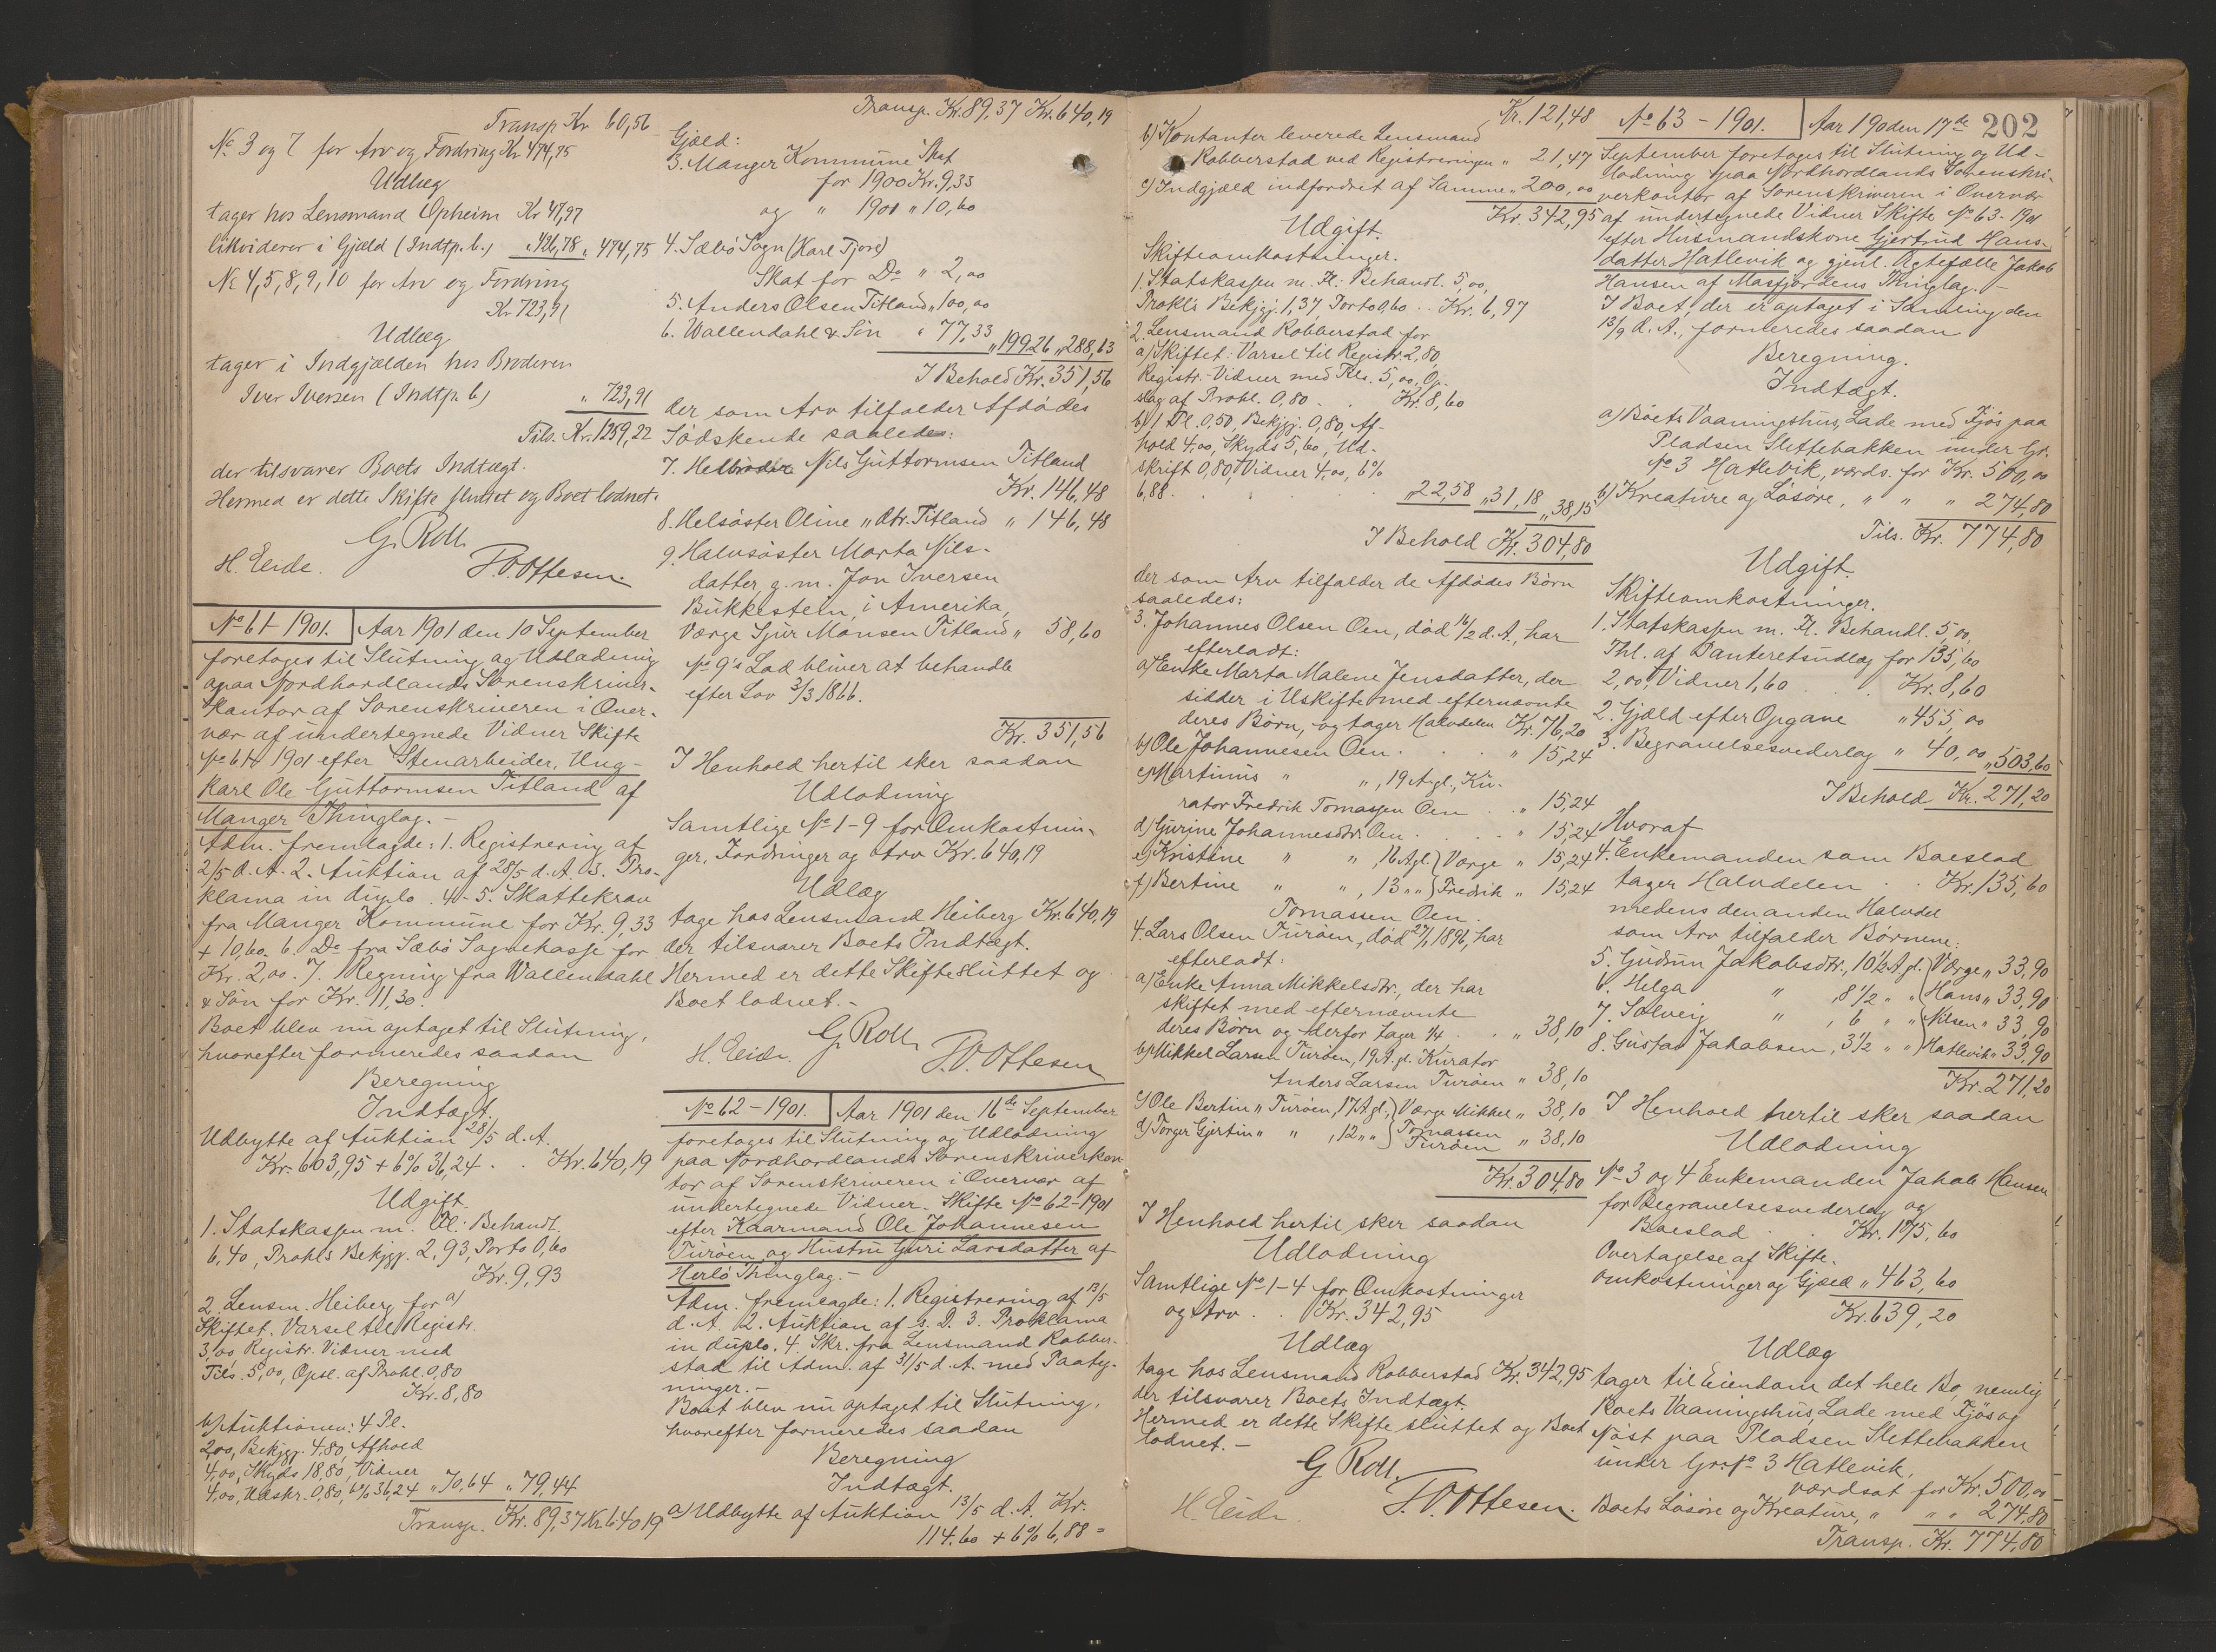 Transp. Kr. 60,56
No 3 og 7 for Arv og Fordring Kr 474,75
Udlæg
tager hos Lensmand Opheim Kr 47,97
likviderer i Gjæld (Indtp. b.) " 426,78 " 474,75
No 4, 5, 8, 9, 10 for Arv og Fordring
Kr 723,91
Udlæg
tager i Indgjælden hos Broderen
Iver Iversen (Indtp. b) " 723,91
Tils. Kr. 1259,22
der tilsvarer Boets Indtægt.
Hermed er dette Skifte sluttet og Boet lodnet.
G. Roll
H. Eide. P.O. Ottesen.
No 61 - 1901. Aar 1901 den 10 September
foretoges til Slutning og Udlodning
paa Nordhordlands Sorenskriver-
kontor af Sorenskriveren i Over-
vær af undertegnede Vidner Skifte
No 61 1901 efter Stenarbeider, Ung-
karl Ole Guttormsen Titland af
Manger Thinglag. -
Adm. fremlagde: 1. Registrering af
2/5 d. A. 2. Auktion af 28/5 d. A. 3. Pro-
klama in duplo. 4-5. Skattekrav
fra Manger Kommune for Kr. 9,33
+ 10,60. 6. Do fra Sæbö Sognekasse for
Kr. 2,00. 7. Regning fra Wallendahl
& Sön for Kr. 11,30.
Boet blev nu optaget til Slutning,
hvorefter formeredes saadan
Beregning
Indtægt.
Udbytte af Auktion 28/5 d. A.
Kr. 603,95 + 6% 36,24 . . Kr. 640,19
Udgift.
1. Statskassen m. Fl: Behandl.
6,40, Prokls Bekjgj. 2,93, Porto 0,60
Kr. 9,93
2. Lensm. Heiberg for a)
Skiftet. Varsel til Registr.
3,00 Registr. Vidner med
Tils. 5,00, Opsl. af Prokl. 0,80
Kr. 8,80
b) Auktionen: 4 Pl.
2,00, Bekjgj. 4,80, Afhold
4,00, Skyds 18,80, Vidner
4,00, Udskr. 0,80, 6% 36,24 " 70,64 " 79,44
Transp. Kr. 89,37 Kr 640,19
Transp. Kr. 89,37 Kr. 640,19
Gjæld:
3. Manger Kommune Skat
for 1900 Kr. 9,33
og " 1901 " 10,60
4. Sæbö Sogn (Karl Fjore)
Skat for Do " 2,00
5. Anders Olsen Titland " 100,00
6. Wallendahl & Sön " 77,33 " 199,26 " 288,63
I Behold Kr. 351,56
der som Arv tilfalder Afdödes
Södskende saaledes:
7. Helbroder Nils Guttormsen Titland
Kr. 146,48
8. Helsöster Oline " dtr. Titland " 146,48
9. Halvsöster Marta Nils-
datter g. m. Jon Iversen
Bukkestein, i Amerika,
Værge Sjur Monsen Titland " 58,60
No 9's Lod bliver at behandle
efter Lov 3/3 1866.
Kr. 351,56
I Henhold hertil sker saadan
Udlodning
Samtlige No 1-9 for Omkostnin-
ger, Fordringer og Arv Kr. 640,19
Udlæg
tage hos Lensmand Heiberg Kr. 640,19
der tilsvarer Boets Indtægt.
Hermed er dette Skifte sluttet og
Boet lodnet. -
G. Roll
H. Eide. P.O. Ottesen
No 62 - 1901. Aar 1901 den 16de September
foretoges til Slutning og Udlodning
paa Nordhordlands Sorenskriverkon
tor af Sorenskriveren i Overvær af
undertegnede Vidner. Skifte No 62 - 1901
efter Kaarmand Ole Johannesen
Turöen og Hustru Guri Larsdatter af
Herlö Thinglag. -
Adm. fremlagde: 1. Registrering af 13/5
d. A. 2. Auktion af s. D. 3. Proklama
in duplo. 4. Skr. fra Lensmand Robber-
stad til Adm. af 31/5 d. A. med Paateg-
ninger. -
Boet blev nu optaget til Slutning,
hvorefter formeredes saadan
Beregning
Indtægt.
a) Udbytte af Auktion 13/5 d. A. Kr.
114.60 + 6% 6,88 =
Kr. 121,48
b) Kontanter leverede Lensmand
Robberstad ved Registreringen " 21,47
c) Indgjæld indfordret af Samme " 200,00
Kr. 342,95
Udgift.
Skifteomkostninger.
1. Statskassen m. Fl: Behandl. 5,00,
Prokls Bekjgj. 1,37, Porto 0,60 . . Kr. 6,97
2. Lensmand Robberstad for
a) Skiftet: Varsel til Registr. 2,80,
Registr.-Vidner med Tils. 5,00, Op-
slag af Prokl. 0,80 . . Kr. 8,60
b) 1 Pl. 0,50, Bekjgj. 0,80, Af-
hold 4,00, Skyds 5,60, Ud-
skrift 0,80, Vidner 4,00, 6%
6,88 . . . . . " 22,58 " 31,18 " 38,15
I Behold Kr. 304,80
der som Arv tilfalder de Afdödes Börn
saaledes:
3. Johannes Olsen Oen, död 16/2 d. A., har
efterladt:
a) Enke Marta Malene Jensdatter, der
sidder i Uskifte med efternævnte
deres Börn, og tager Halvdelen Kr. 76,20
b) Ole Johannesen Oen . . . " 15,24
c) Martinus " ", 19 A. gl., Ku-
rator Fredrik Tomassen Oen . . " 15,24
d) Gurine Johannesdtr. Oen . . . " 15,24
e) Kristine " " 16 A gl. } Værge " 15,24
f) Bertine " ", 13 " " } Fredrik " 15,24
Tomassen Oen.
4. Lars Olsen Turöen, död 27/1 1896, har
efterladt:
a) Enke Anna Mikkelsdtr., der har
skiftet med efternævnte
deres Börn og derfor tager 1/4 . . " 38,10
b) Mikkel Larsen Turöen, 19 A. gl. Kurator
Anders Larsen Turöen " 38,10
c) Ole Bertin " Turöen, 17 A gl., } Værge Mikkel " 38,10
d) Torger Gjertin " ", 12 " " } Tomassen
Turöen " 38,10
Kr. 304,80
I Henhold hertil sker saadan
Udlodning
Samtlige No 1-4 for Omkostninger
og Arv . . Kr. 342,95
Udlæg
tage hos Lensmand Robberstad Kr. 342,95
der tilsvarer Boets Indtægt.
Hermed er dette Skifte sluttet og Boet
lodnet. -
G Roll.
H. Eide. P.O. Ottesen.
202
No 63 - 1901. Aar 190 den 17de
September foretoges til Slutning og Ud-
lodning paa Nordhordlands Sorenskri-
verkontor af Sorenskriveren i Overvær
af undertegnede Vidner Skifte No 63 - 1901
efter Husmandskone Gjertrud Hans-
datter Hatlevik og gjenl. Ægtefælle Jakob
Hansen af Masfjordens Thinglag. -
I Boet, der er optaget i Samling den
13/9 d. A., formeredes saadan
Beregning.
Indtægt.
a) Boets Vaaningshus, Lade med Fjös paa
Pladsen Slettebakken under Gr.
No 3 Hatlevik, værds. for Kr. 500,00
b) Kreature og Lösöre, " " " 274,80
Tils. Kr. 774,80
Udgift.
Skifteomkostninger.
1. Statskassen m. Fl. Behandl. 5,00,
Thl. af Panteretsudlæg for 135,60
2,00, Vidner 1,60 . . . Kr. 8,60
2. Gjæld efter Opgave " 455,00
3. Begravelsesvederlag " 40,00 " 503,60
I Behold Kr. 271,20
Hvoraf
4. Enkemanden som Boeslod
tager Halvdelen . . Kr. 135,60
medens den anden Halvdel
som Arv tilfalder Börnene:
5. Gudrun Jakobsdtr., 10 1/2 A. gl. } Værge " 33,90
6. Helga " ", 8 1/2 " " } Hans " 33,90
7. Solveig " ", 6 " " } Nilsen " 33,90
8. Gustav Jakobsen, 3 1/2 " " } Hatlevik " 33,90
Kr. 271,20
I Henhold hertil sker saadan
Udlodning
No 3 og 4 Enkemanden Jakob Hansen
for Begravelsesvederlag og
Boeslod . . Kr. 175,60
Overtagelse af Skifte-
omkostninger og Gjæld " 463,60
Kr. 639,20
Udlæg
tager til Eiendom det hele Bo, nemlig
Boets Vaaningshus, Lade med Fjös og
Nöst paa Pladsen Slettebakken
under Gr. No 3 Hatlevik,
værdsat for Kr. 500,00
Boets Lösöre og Kreature, " " " 274,80
Transp. Kr. 774,80